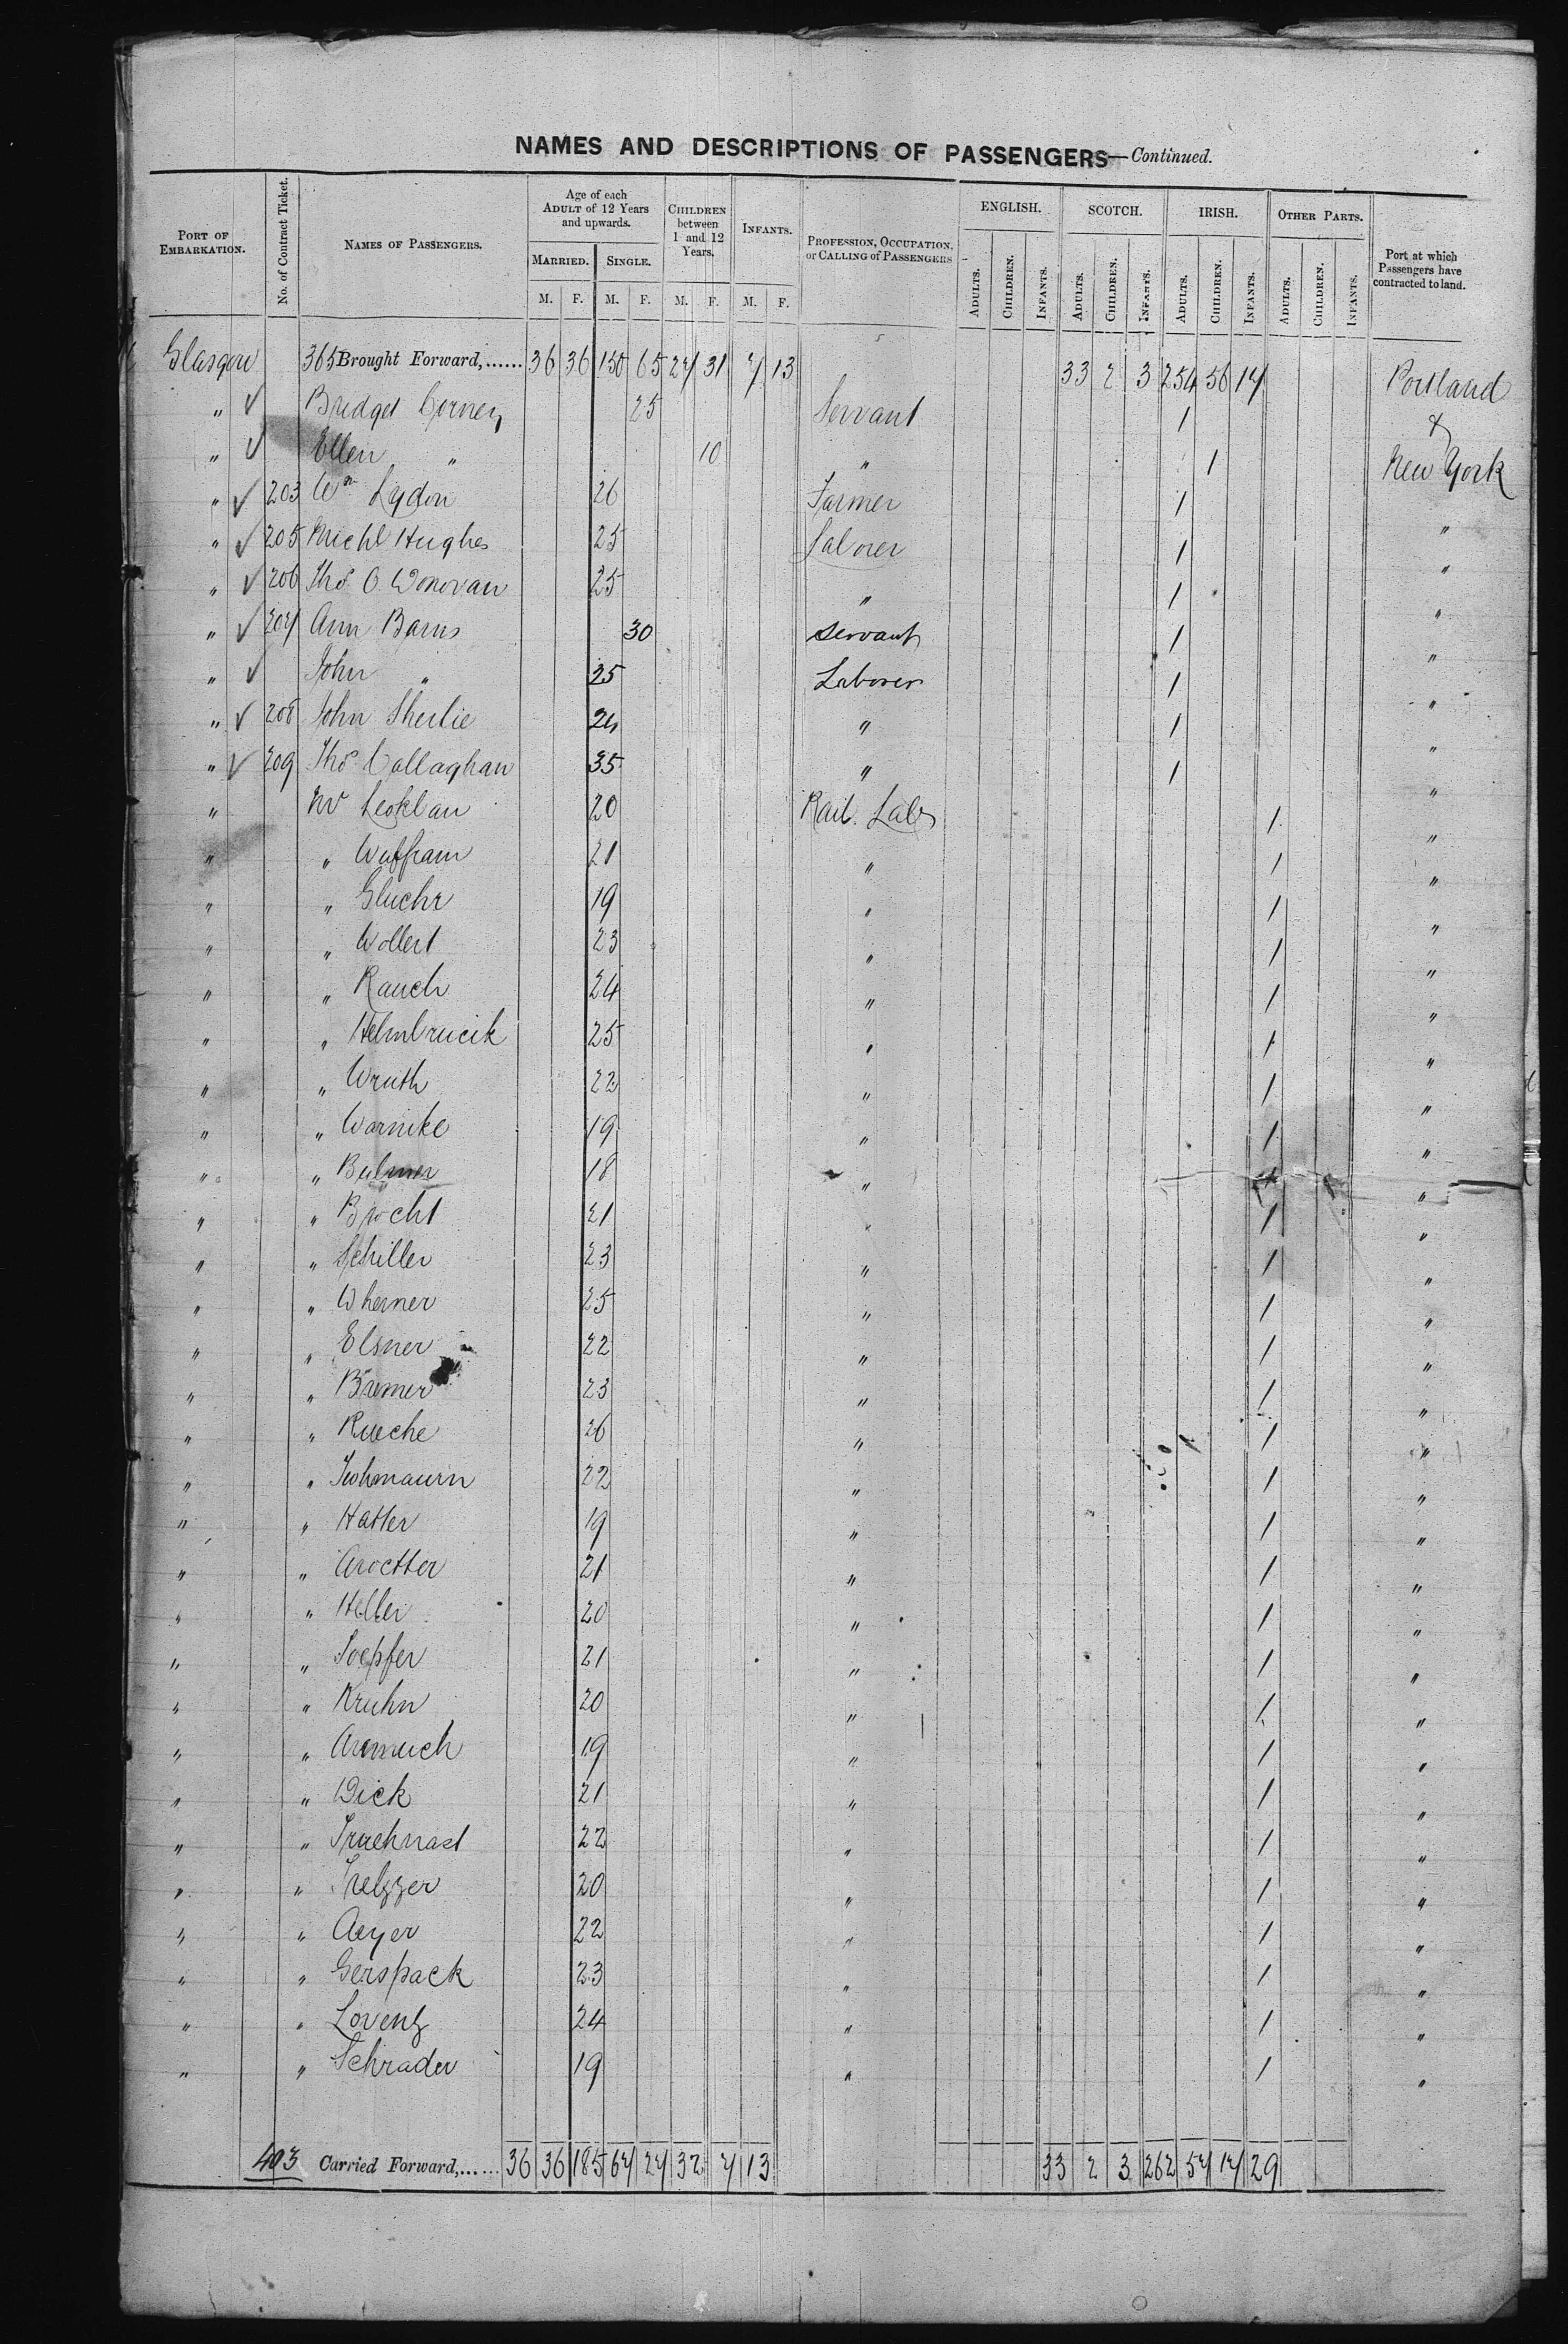 NAMES AND DESCRIPTIONS OF PASSENGERS—Continued.
PORT OF EMBARKATION. No. of Contract Ticket. NAMES OF PASSENGERS. Age of each ADULT of 12 Years and upwards. MARRIED. SINGLE. CHILDREN between 1 and 12 Years. INFANTS. PROFESSION, OCCUPATION, or CALLING of PASSENGERS ENGLISH. SCOTCH. IRISH. OTHER PARTS. Port at which Passengers have contracted to land.
M. F. M. F. M. F. M. F. ADULTS. CHILDREN. INFANTS. ADULTS. CHILDREN. INFANTS. ADULTS. CHILDREN. INFANTS. ADULTS. CHILDREN. INFANTS.
Glasgow 365 Brought Forward,...... 36 36 150 65 27 31 7 13 33 2 3 254 56 17 Portland
" ✓ Bridget 25 Servant 1 &
" ✓ Ellen " 10 " 1 New York
" ✓ 203 Wm Lydon 26 Farmer 1 "
" ✓ 205 Michl Hughes 25 Laborer 1 "
" ✓ 206 Thos O. Donovan 25 " 1 "
" ✓ 207 Ann Barns 30 Servant 1 "
" ✓ John " 25 Laborer 1 "
" ✓ 208 John 24 " 1 "
" ✓ 209 Thos Callaghan 35 " 1 "
" 20 Rail. Labr 1 "
" " 21 " 1 "
" " Gluchr 19 " 1 "
" " Wollert 23 " 1 "
" " Rauch 24 " 1 "
" " 25 " 1 "
" " Wruth 22 " 1 "
" " Warnike 19 " 1 "
" " Bulmer 18 " 1 "
" " Brocht 21 " 1 "
" " Schiller 23 " 1 "
" " Wherner 25 " 1 "
" " Elsner 22 " 1 "
" " Bremer 23 " 1 "
" " Rueche 26 " 1 "
" " 22 " 1 "
" " Hatter 19 " 1 "
" " 21 " 1 "
" " Heller 20 " 1 "
" " Toepfer 21 " 1 "
" " Kruhn 20 " 1 "
" " 19 " 1 "
" " Dick 21 " 1 "
" " 22 " 1 "
" " 20 " 1 "
" " Aeyer 22 " 1 "
" " Gerspack 23 " 1 "
" " Lorenz 24 " 1 "
" " Schrader 19 " 1 "
403 Carried Forward,...... 36 36 185 67 27 32 7 13 33 2 3 262 57 17 29